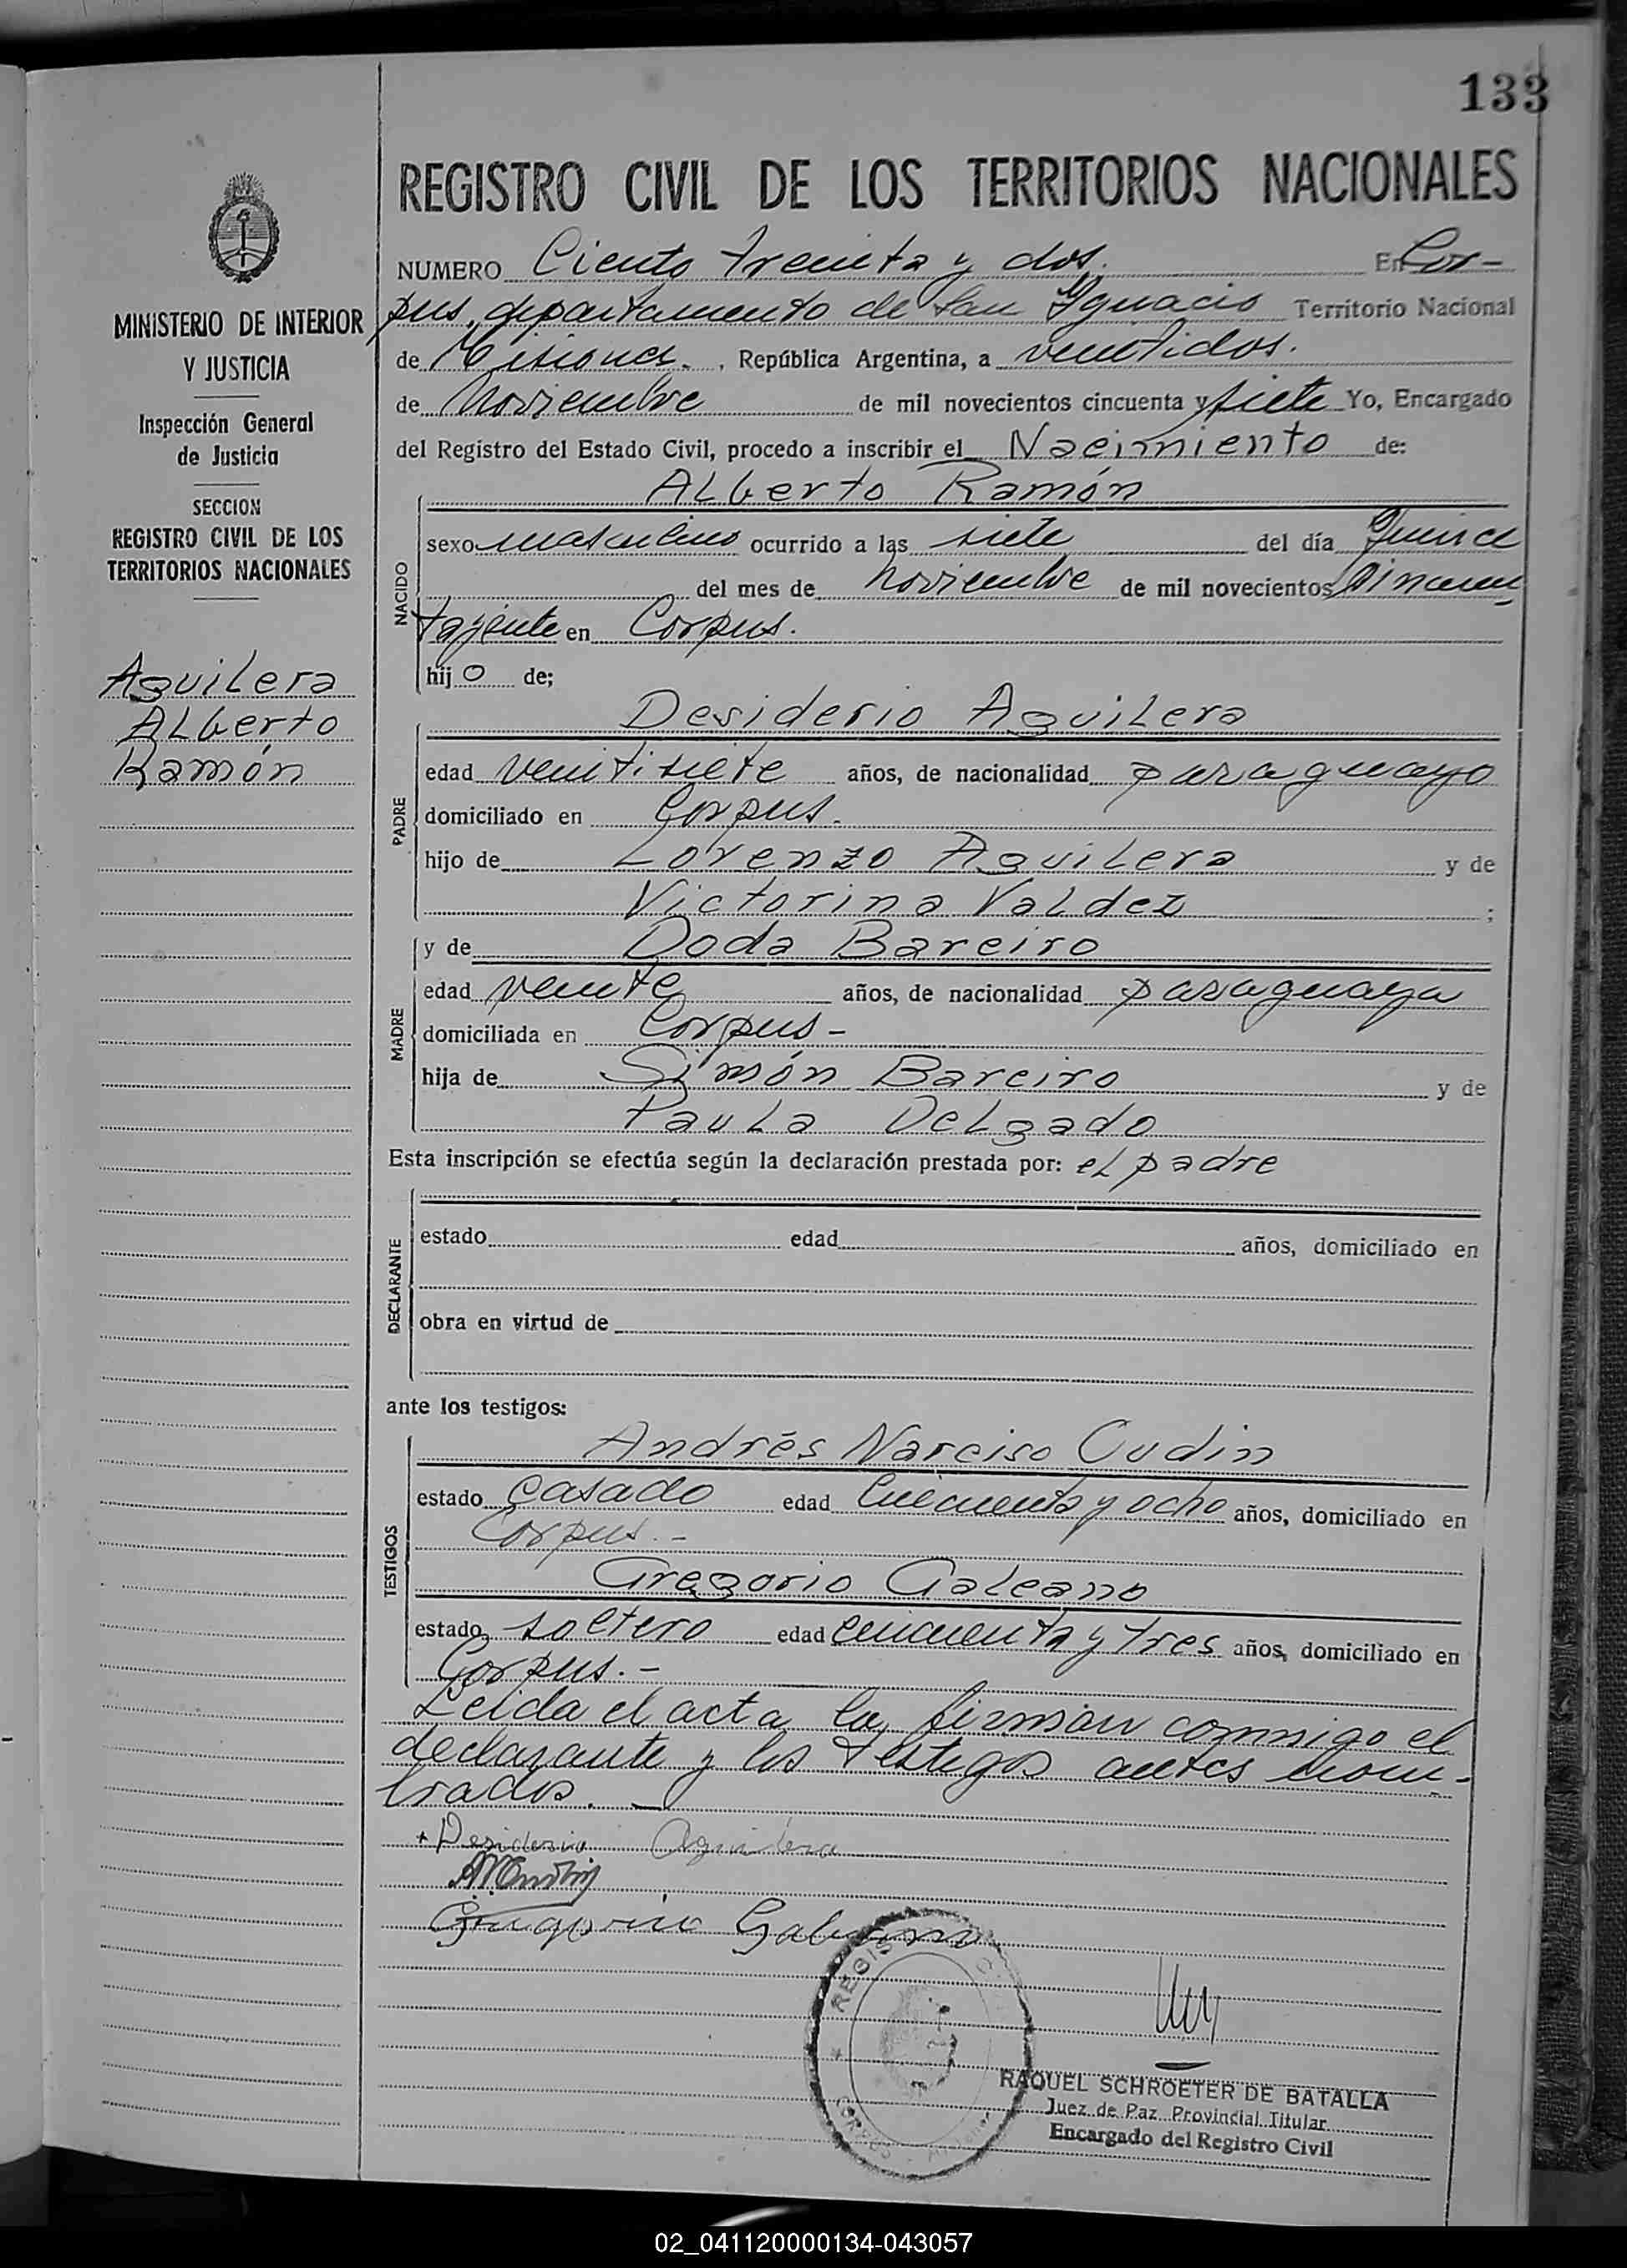 133
REGISTRO CIVIL DE LOS TERRITORIOS NACIONALES
MINISTERIO DE INTERIOR
Y JUSTICIA
Inspección General
de Justicia
SECCION
REGISTRO CIVIL DE LOS
TERRITORIOS NACIONALES
Aguilera
Alberto
Ramón
NUMERO Ciento treinta y dos. En Cor-
pus, departamento de San Ygnacio Territorio Nacional
de Misiones., República Argentina, a veintidos.
de Noviembre de mil novecientos cincuenta y siete Yo, Encargado
del Registro del Estado Civil, procedo a inscribir el Nacimiento de:
NACIDO
Alberto Ramón
sexo masculino ocurrido a las siete del día Quince
del mes de noviembre de mil novecientos cincuen
taysiete en Corpus.
hijo de;
PADRE
Desiderio Aguilera
edad veintisiete años, de nacionalidad paraguayo
domiciliado en Corpus.
hijo de Lorenzo Aguilera y de
Victorina Valdez ;
MADRE
y de Doda Bareiro
edad veinte años, de nacionalidad paraguaya
domiciliada en Corpus-
hija de Simón Bareiro y de
Paula Delgado
Esta inscripción se efectúa según la declaración prestada por: el padre
DECLARANTE
estado edad años, domiciliado en
obra en virtud de
ante los testigos:
TESTIGOS
Andrés Narciso Oudin
estado casado edad cincuenta y ocho años, domiciliado en
Corpus.-
Gregorio Galeano
estado soltero edad cincuenta y tres años, domiciliado en
Corpus.-
Leida el acta la firman conmigo el
declarante y los testigos antes nom-
brados.
+ Desiderio Aguilera
Gregorio Galeano
REGIS
CORPUS
RAQUEL SCHROETER DE BATALLA
Juez de Paz Provincial Titular
Encargado del Registro Civil
02_041120000134-043057